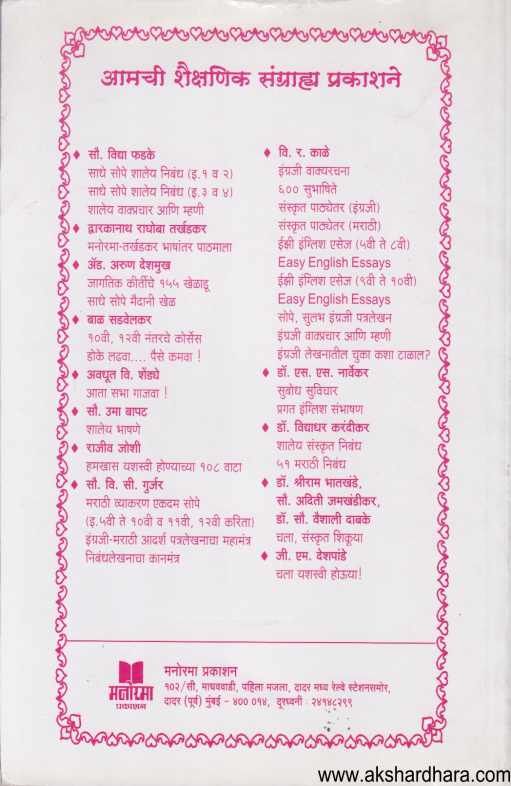 आमची शैक्षणिक संग्राह्य प्रकाशने
♦ सौ. विद्या फडके
साधे सोपे शालेय निबंध (इ.१ व २)
साधे सोपे शालेय निबंध (इ.३ व ४)
शालेय वाक्प्रचार आणि म्हणी
♦ द्वारकानाथ राघोबा तर्खडकर
मनोरमा-तर्खडकर भाषांतर पाठमाला
♦ ॲड. अरुण देशमुख
जागतिक कीर्तीचे १५५ खेळाडू
साधे सोपे मैदानी खेळ
♦ बाळ सडवेलकर
१०वी, १२वी नंतरचे कोर्सेस
डोके लढवा.... पैसे कमवा !
♦ अवधूत वि. शेंड्ये
आता सभा गाजवा !
♦ सौ. उमा बापट
शालेय भाषणे
♦ राजीव जोशी
हमखास यशस्वी होण्याच्या १०८ वाटा
♦ सौ. वि. सी. गुर्जर
मराठी व्याकरण एकदम सोपे
(इ.५वी ते १०वी व ११वी, १२वी करिता)
इंग्रजी-मराठी आदर्श पत्रलेखनाचा महामंत्र
निबंधलेखनाचा कानमंत्र
♦ वि. र. काळे
इंग्रजी वाक्यरचना
६०० सुभाषिते
संस्कृत पाठ्येतर (इंग्रजी)
संस्कृत पाठ्येतर (मराठी)
ईझी इंग्लिश एसेज (५वी ते ८वी)
Easy English Essays
ईझी इंग्लिश एसेज (९वी ते १०वी)
Easy English Essays
सोपे, सुलभ इंग्रजी पत्रलेखन
इंग्रजी वाक्प्रचार आणि म्हणी
इंग्रजी लेखनातील चुका कशा टाळाल?
♦ डॉ. एस. एस. नार्वेकर
सुबोध सुविचार
प्रगत इंग्लिश संभाषण
♦ डॉ. विद्याधर करंदीकर
शालेय संस्कृत निबंध
५१ मराठी निबंध
♦ डॉ. श्रीराम भातखंडे,
सौ. अदिती जमखंडीकर,
डॉ. सौ. वैशाली दाबके
चला, संस्कृत शिकूया
♦ जी. एम. देशपांडे
चला यशस्वी होऊया!
मनोरमा
प्रकाशन
मनोरमा प्रकाशन
१०२/सी, माधववाडी, पहिला मजला, दादर मध्य रेल्वे स्टेशनसमोर,
दादर (पूर्व) मुंबई - ४०० ०१४, दूरध्वनी : २४१४८२९९
www.akshardhara.com